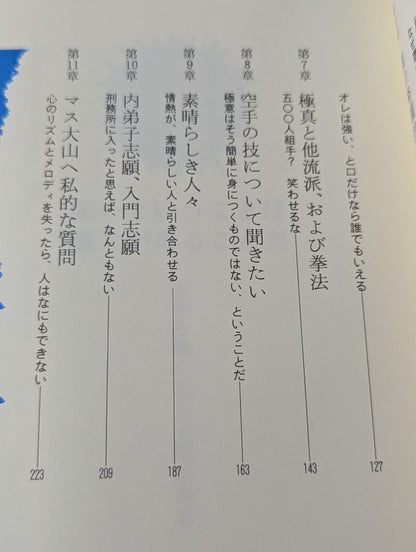 オレは強い、と口だけなら誰でもいえる 127
第7章
極真と他流派、および拳法
五〇〇人組手？ 笑わせるな 143
第8章
空手の技について聞きたい
極意はそう簡単に身につくものではない、ということだ 163
第9章
素晴らしき人々
情熱が、素晴らしい人と引き合わせる 187
第10章
内弟子志願、入門志願
刑務所に入ったと思えば、なんともない 209
第11章
マス大山へ私的な質問
心のリズムとメロディを失ったら、人はなにもできない 223